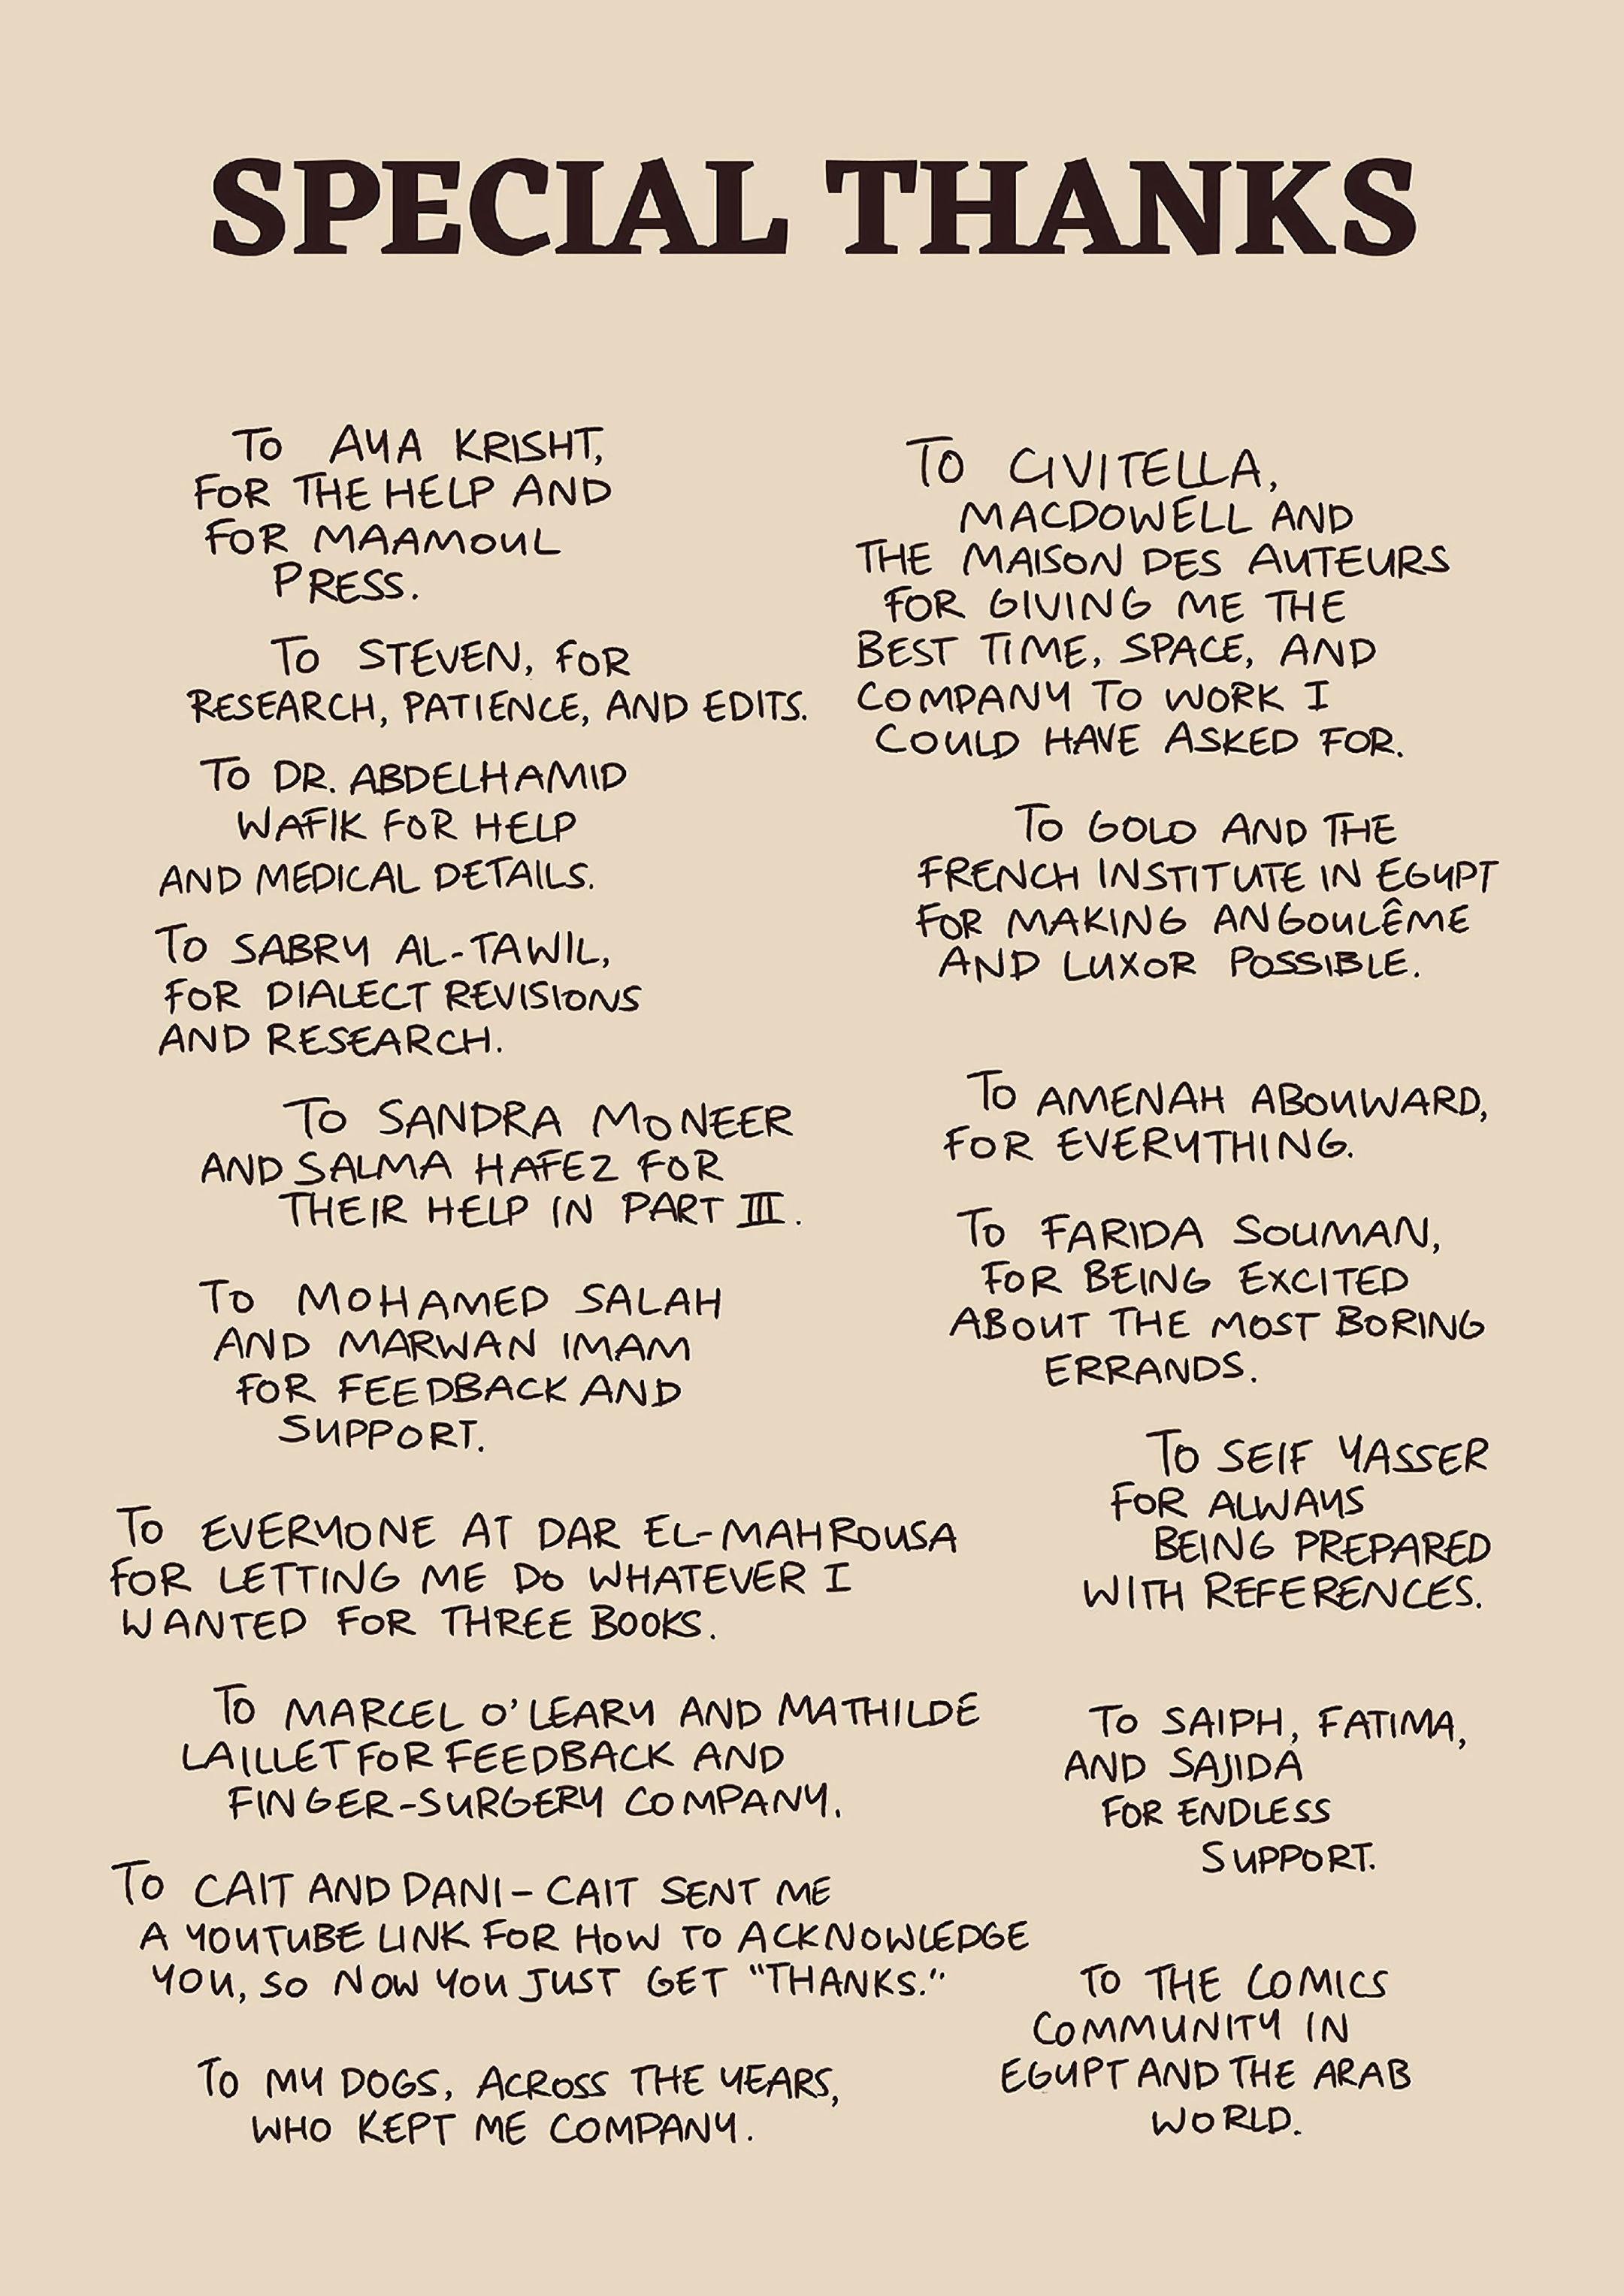 SPECIAL THANKS
TO AYA KRISHT,
FOR THE HELP AND
FOR MAAMOUL
PRESS.
TO STEVEN, FOR
RESEARCH, PATIENCE, AND EDITS.
TO DR. ABDELHAMID
WAFIK FOR HELP
AND MEDICAL DETAILS.
TO SABRY AL-TAWIL,
FOR DIALECT REVISIONS
AND RESEARCH.
TO SANDRA MONEER
AND SALMA HAFEZ FOR
THEIR HELP IN PART III.
TO MOHAMED SALAH
AND MARWAN IMAM
FOR FEEDBACK AND
SUPPORT.
TO EVERYONE AT DAR EL-MAHROUSA
FOR LETTING ME DO WHATEVER I
WANTED FOR THREE BOOKS.
TO MARCEL O'LEARY AND MATHILDE
LAILLET FOR FEEDBACK AND
FINGER-SURGERY COMPANY.
TO CAIT AND DANI - CAIT SENT ME
A YOUTUBE LINK FOR HOW TO ACKNOWLEDGE
YOU, SO NOW YOU JUST GET "THANKS."
TO MY DOGS, ACROSS THE YEARS,
WHO KEPT ME COMPANY.
TO CIVITELLA,
MACDOWELL AND
THE MAISON DES AUTEURS
FOR GIVING ME THE
BEST TIME, SPACE, AND
COMPANY TO WORK I
COULD HAVE ASKED FOR.
TO GOLO AND THE
FRENCH INSTITUTE IN EGYPT
FOR MAKING ANGOULÊME
AND LUXOR POSSIBLE.
TO AMENAH ABOUWARD,
FOR EVERYTHING.
TO FARIDA SOUMAN,
FOR BEING EXCITED
ABOUT THE MOST BORING
ERRANDS.
TO SEIF YASSER
FOR ALWAYS
BEING PREPARED
WITH REFERENCES.
TO SAIPH, FATIMA,
AND SAJIDA
FOR ENDLESS
SUPPORT.
TO THE COMICS
COMMUNITY IN
EGYPT AND THE ARAB
WORLD.